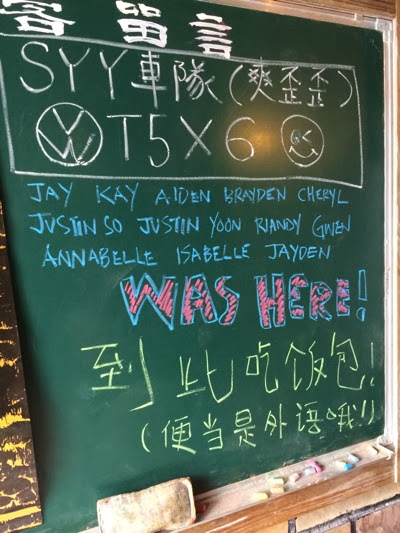 客留言
SYY車隊(爽歪歪)
VW T5X6
JAY KAY AIDEN BRAYDEN CHERYL
JUSTIN SO JUSTIN YOON RIANDY GWEN
ANNABELLE ISABELLE JAYDEN
WAS HERE!
到此吃饭包!
(便当是外语哦!!)